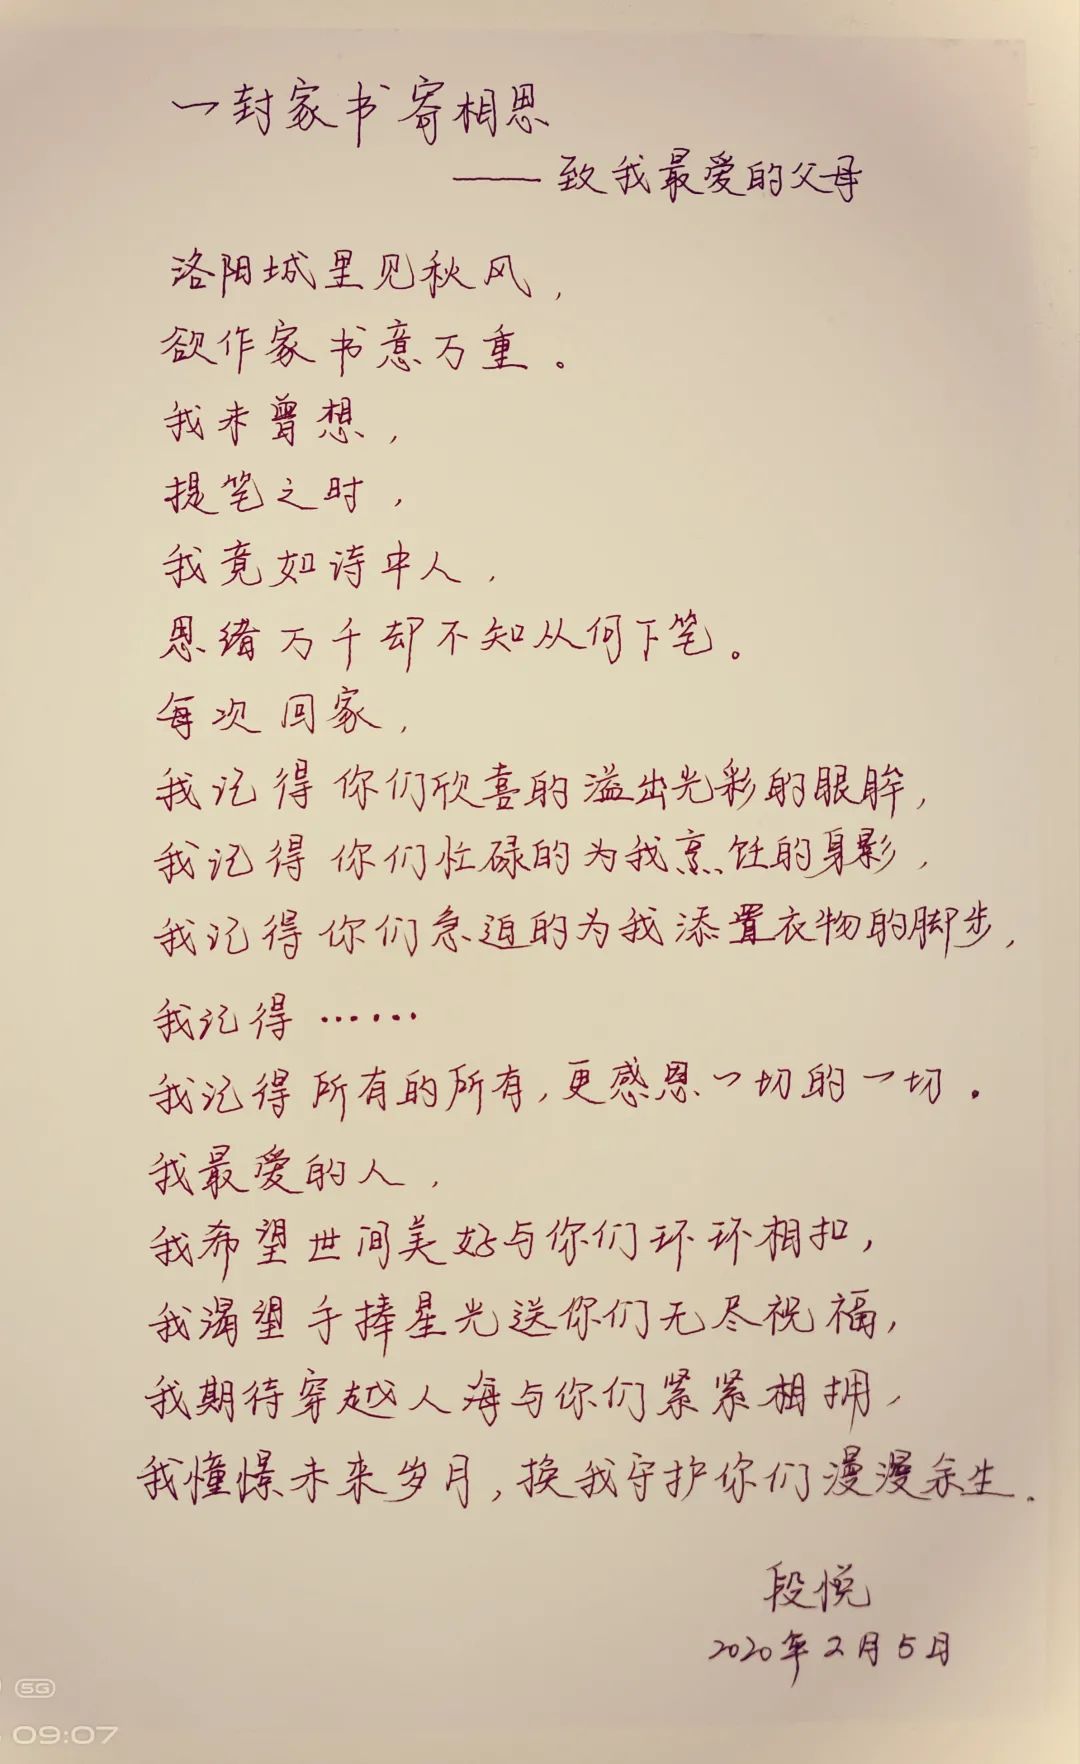 一封家书寄相思
——致我最爱的父母
洛阳城里见秋风,
欲作家书意万重。
我未曾想,
提笔之时,
我竟如诗中人,
思绪万千却不知从何下笔。
每次回家,
我记得你们欣喜的溢出光彩的眼眸,
我记得你们忙碌的为我烹饪的身影,
我记得你们急迫的为我添置衣物的脚步,
我记得……
我记得所有的所有,更感恩一切的一切.
我最爱的人,
我希望世间美好与你们环环相扣,
我渴望手捧星光送你们无尽祝福,
我期待穿越人海与你们紧紧相拥,
我憧憬未来岁月,换我守护你们漫漫余生.
段悦
2020年2月5日
5G
09:07